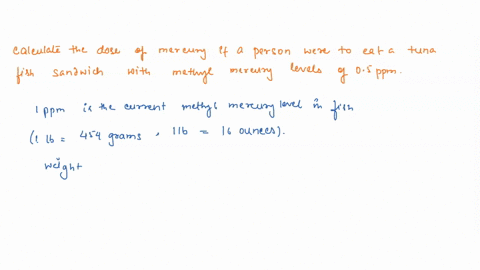 calculate the dose of mercury if a person were to eat a tuna
fish sandwich with methyl mercury levels of 0.5 ppm.
1 ppm is the current methyl mercury level in fish
(1 lb = 454 grams, 1 lb = 16 ounces).
weight